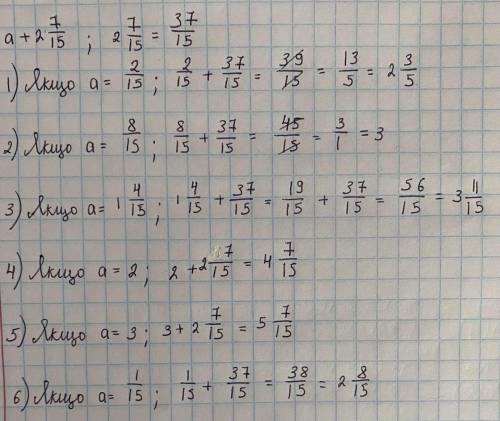 a + 2 7/15 ; 2 7/15 = 37/15
1) Якщо a = 2/15 ; 2/15 + 37/15 = 39/15 = 13/5 = 2 3/5
2) Якщо a = 8/15 ; 8/15 + 37/15 = 45/15 = 3/1 = 3
3) Якщо a = 1 4/15 ; 1 4/15 + 37/15 = 19/15 + 37/15 = 56/15 = 3 11/15
4) Якщо a = 2 ; 2 + 2 7/15 = 4 7/15
5) Якщо a = 3 ; 3 + 2 7/15 = 5 7/15
6) Якщо a = 1/15 ; 1/15 + 37/15 = 38/15 = 2 8/15